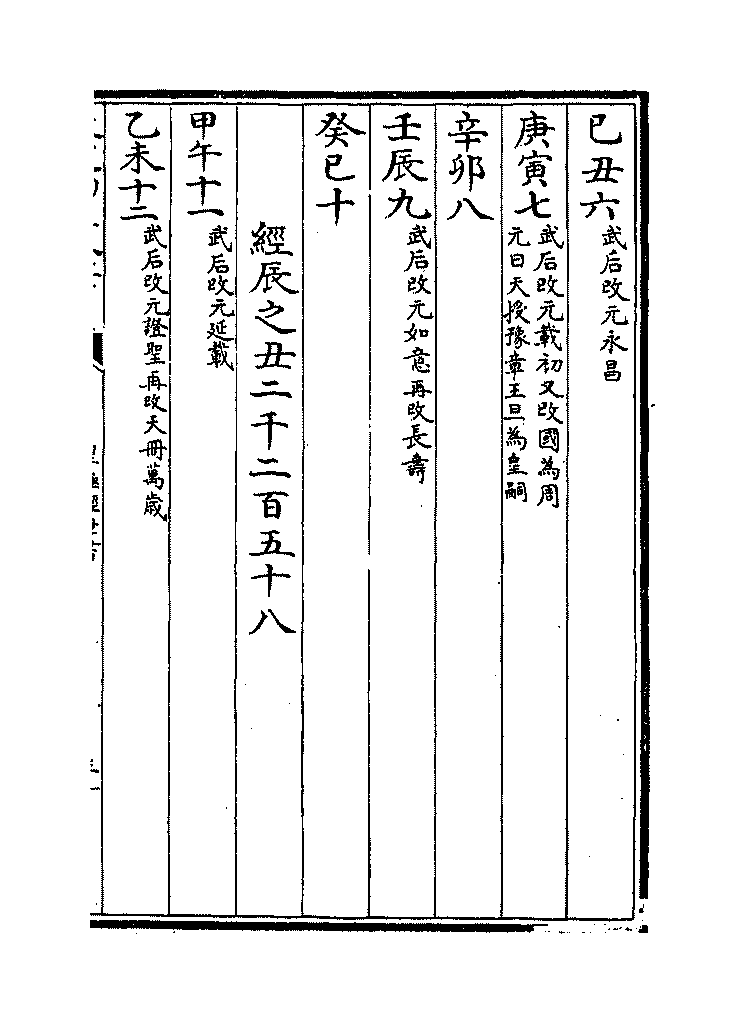 己丑六武后改元永昌
庚寅七武后改元載初又改國為周
元曰天授豫章王旦為皇嗣
辛卯八
壬辰九武后改元如意再改長壽
癸巳十
經辰之丑二千二百五十八
甲午十一武后改元延載
乙未十二武后改元證聖再改天冊萬歲